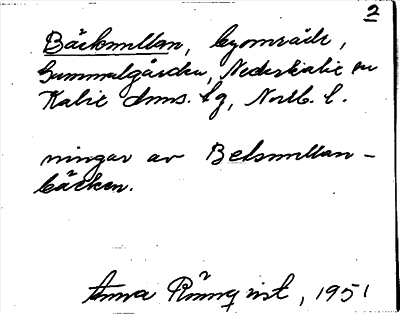 2
Bäckmullan, byområde,
Gammalgården, Nederkalix sn
Kalix dms. lg, Norrb. l.
ningar av Belsmullan-
bäcken.
Anna Rönnqvist, 1951